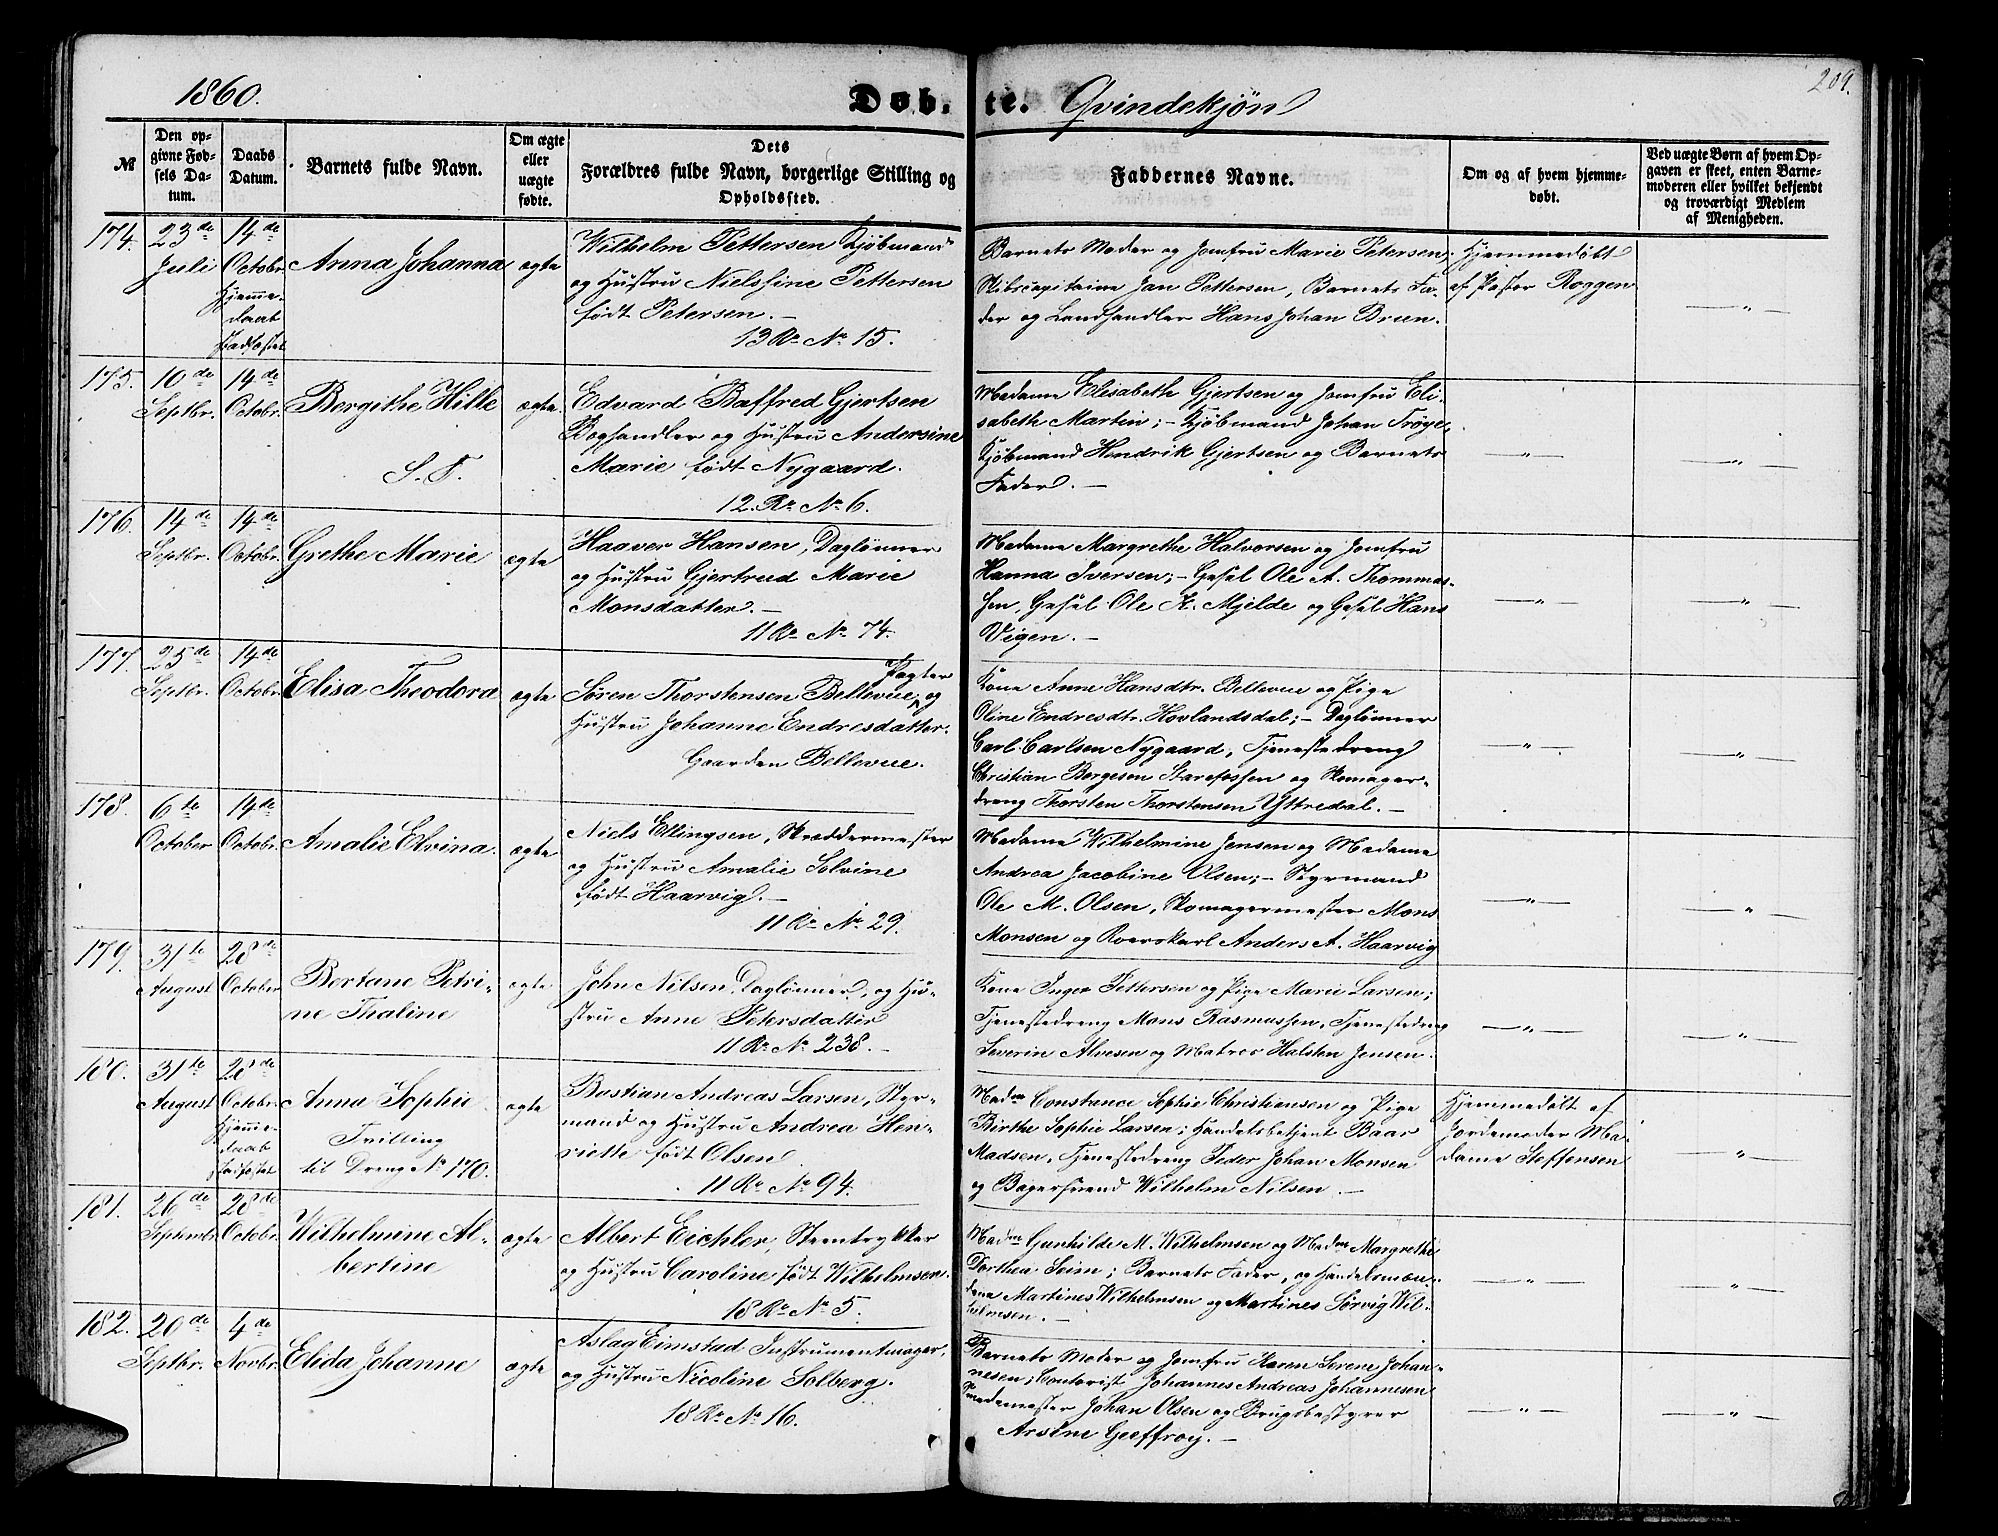 1860.
Døb. te. Qvindekjøn
209.
№
Den opgivne Fødsels Datum.
Daabs Datum.
Barnets fulde Navn.
Om ægte eller uægte fødte.
Dets Forældres fulde Navn, borgerlige Stilling og Opholdssted.
Faddernes Navne.
Om og af hvem hjemmedøbt.
Ved uægte Børn af hvem Opgaven er skeet, enten Barnemoderen eller hvilket bekjendt og troværdigt Medlem af Menigheden.
174. 23de Juli
14de Octobr. Hjemmedaab stadfæstet
Anna Johanna
ægte
Wilhelm Pettersen Kjøbmand
og Hustru Nielsine Pettersen
født Petersen.
13 Re No 15.
Barnets Moder og Jomfru Marie Petersen;
Skibscapitaine Jan Pettersen, Barnets Fa-
der og Landhandler Hans Johan Bruun.
Hjemmedøbt
af Pastor Roggen
175. 10de Septbr.
14de Octobr.
Bergithe Hille
S. T.
ægte
Edvard Baffred Gjertsen
Boghandler og Hustru Andersine
Marie født Nygaard.
12. Re No 6.
Madame Elisabeth Gjertsen og Jomfru Eli-
sabeth Martin; - Kjøbmand Johan Trøye,
Kjøbmand Hendrik Gjertsen og Barnets
Fader.
176. 14de Septbr.
14de Octobr.
Grethe Marie
ægte
Haaver Hansen, Daglønner
og Hustru Gjertrud Marie
Monsdatter.
11 Re No 74.
Madame Margrethe Halvorsen og Jomfru
Hanna Iversen; - Gesel Ole A. Thommas-
sen, Gesel Ole K. Mjelde og Gesel Hans
Vigen.
177. 25de Septbr.
14de Octobr.
Elisa Theodora
ægte
Pagter
Søren Thorstensen Bellevue, og
Hustru Johanne Endresdatter.
Gaarden Bellevue.
Kone Anne Hansdtr. Bellevue og Pige
Oline Endresdtr. Hovlandsdal; - Daglønner
Carl Carlsen Nygaard, Tjenestedreng
Christian Borgesen Starefossen og Skomager-
dreng Thorsten Thorstensen Yttredal.
178. 6te October
14de Octobr.
Amalie Elvina
ægte
Niels Ellingsen, Skræddermester
og Hustru Amalie Solvine
født Haarvig.
11 Re No 29.
Madame Wilhelmine Jensen og Madame
Andrea Jacobine Olsen; - Styrmand
Ole M. Olsen, Skomagermester Mons
Monsen og Roerskarl Anders A. Haarvig
179. 31te August
28de October
Bertane Petri-
ne Thaline
ægte
John Nilsen, Daglønner, og Hu-
stru Anne Petersdatter
11 Re No 238.
Kone Inger Pettersen og Pige Marie Larsen;
Tjenestedreng Mons Rasmussen, Tjenestedreng
Severin Alvesen og Matros Halsten Jensen.
180. 31te August
28de Octobr. Hjemmedaab stadfæstet
Anna Sophie
Tvilling
til Dreng No 170.
ægte
Bastian Andreas Larsen, Styr-
mand og Hustru Andrea Hen-
riette født Olsen
11 Re No 94.
Madme Constance Sophie Christiansen og Pige
Birthe Sophie Larsen; Handelsbetjent Baar
Madsen, Tjenestedreng Peder Johan Monsen
og Bagersvend Wilhelm Nilsen.
Hjemmedøbt af
Jordemoder Ma-
dame Steffensen
181. 26de Septembr.
28de Octobr.
Wilhelmine Al-
bertine
ægte
Albert Eichler, Steentrykker
og Hustru Caroline født Wilhelmsen.
18 Re No 5.
Madme Gunhilde M. Wilhelmsen og Madme Margrethe
Dorthea Seim; Barnets Fader, og Handelsmæn-
dene Martines Wilhelmsen og Martines Sørvig Wil-
helmsen.
182. 20de Septbr.
4de Novbr.
Elida Johanne
ægte
Aslag Eimstad Instrumentmager,
og Hustru Nicoline Solberg.
18 Re No 16.
Barnets Moder og Jomfru Karen Serene Johan-
nesen; Contorist Johannes Andreas Johannesen
Smedemester Johan Olsen og Brugsbestyrer
Arsène Geoffroy.